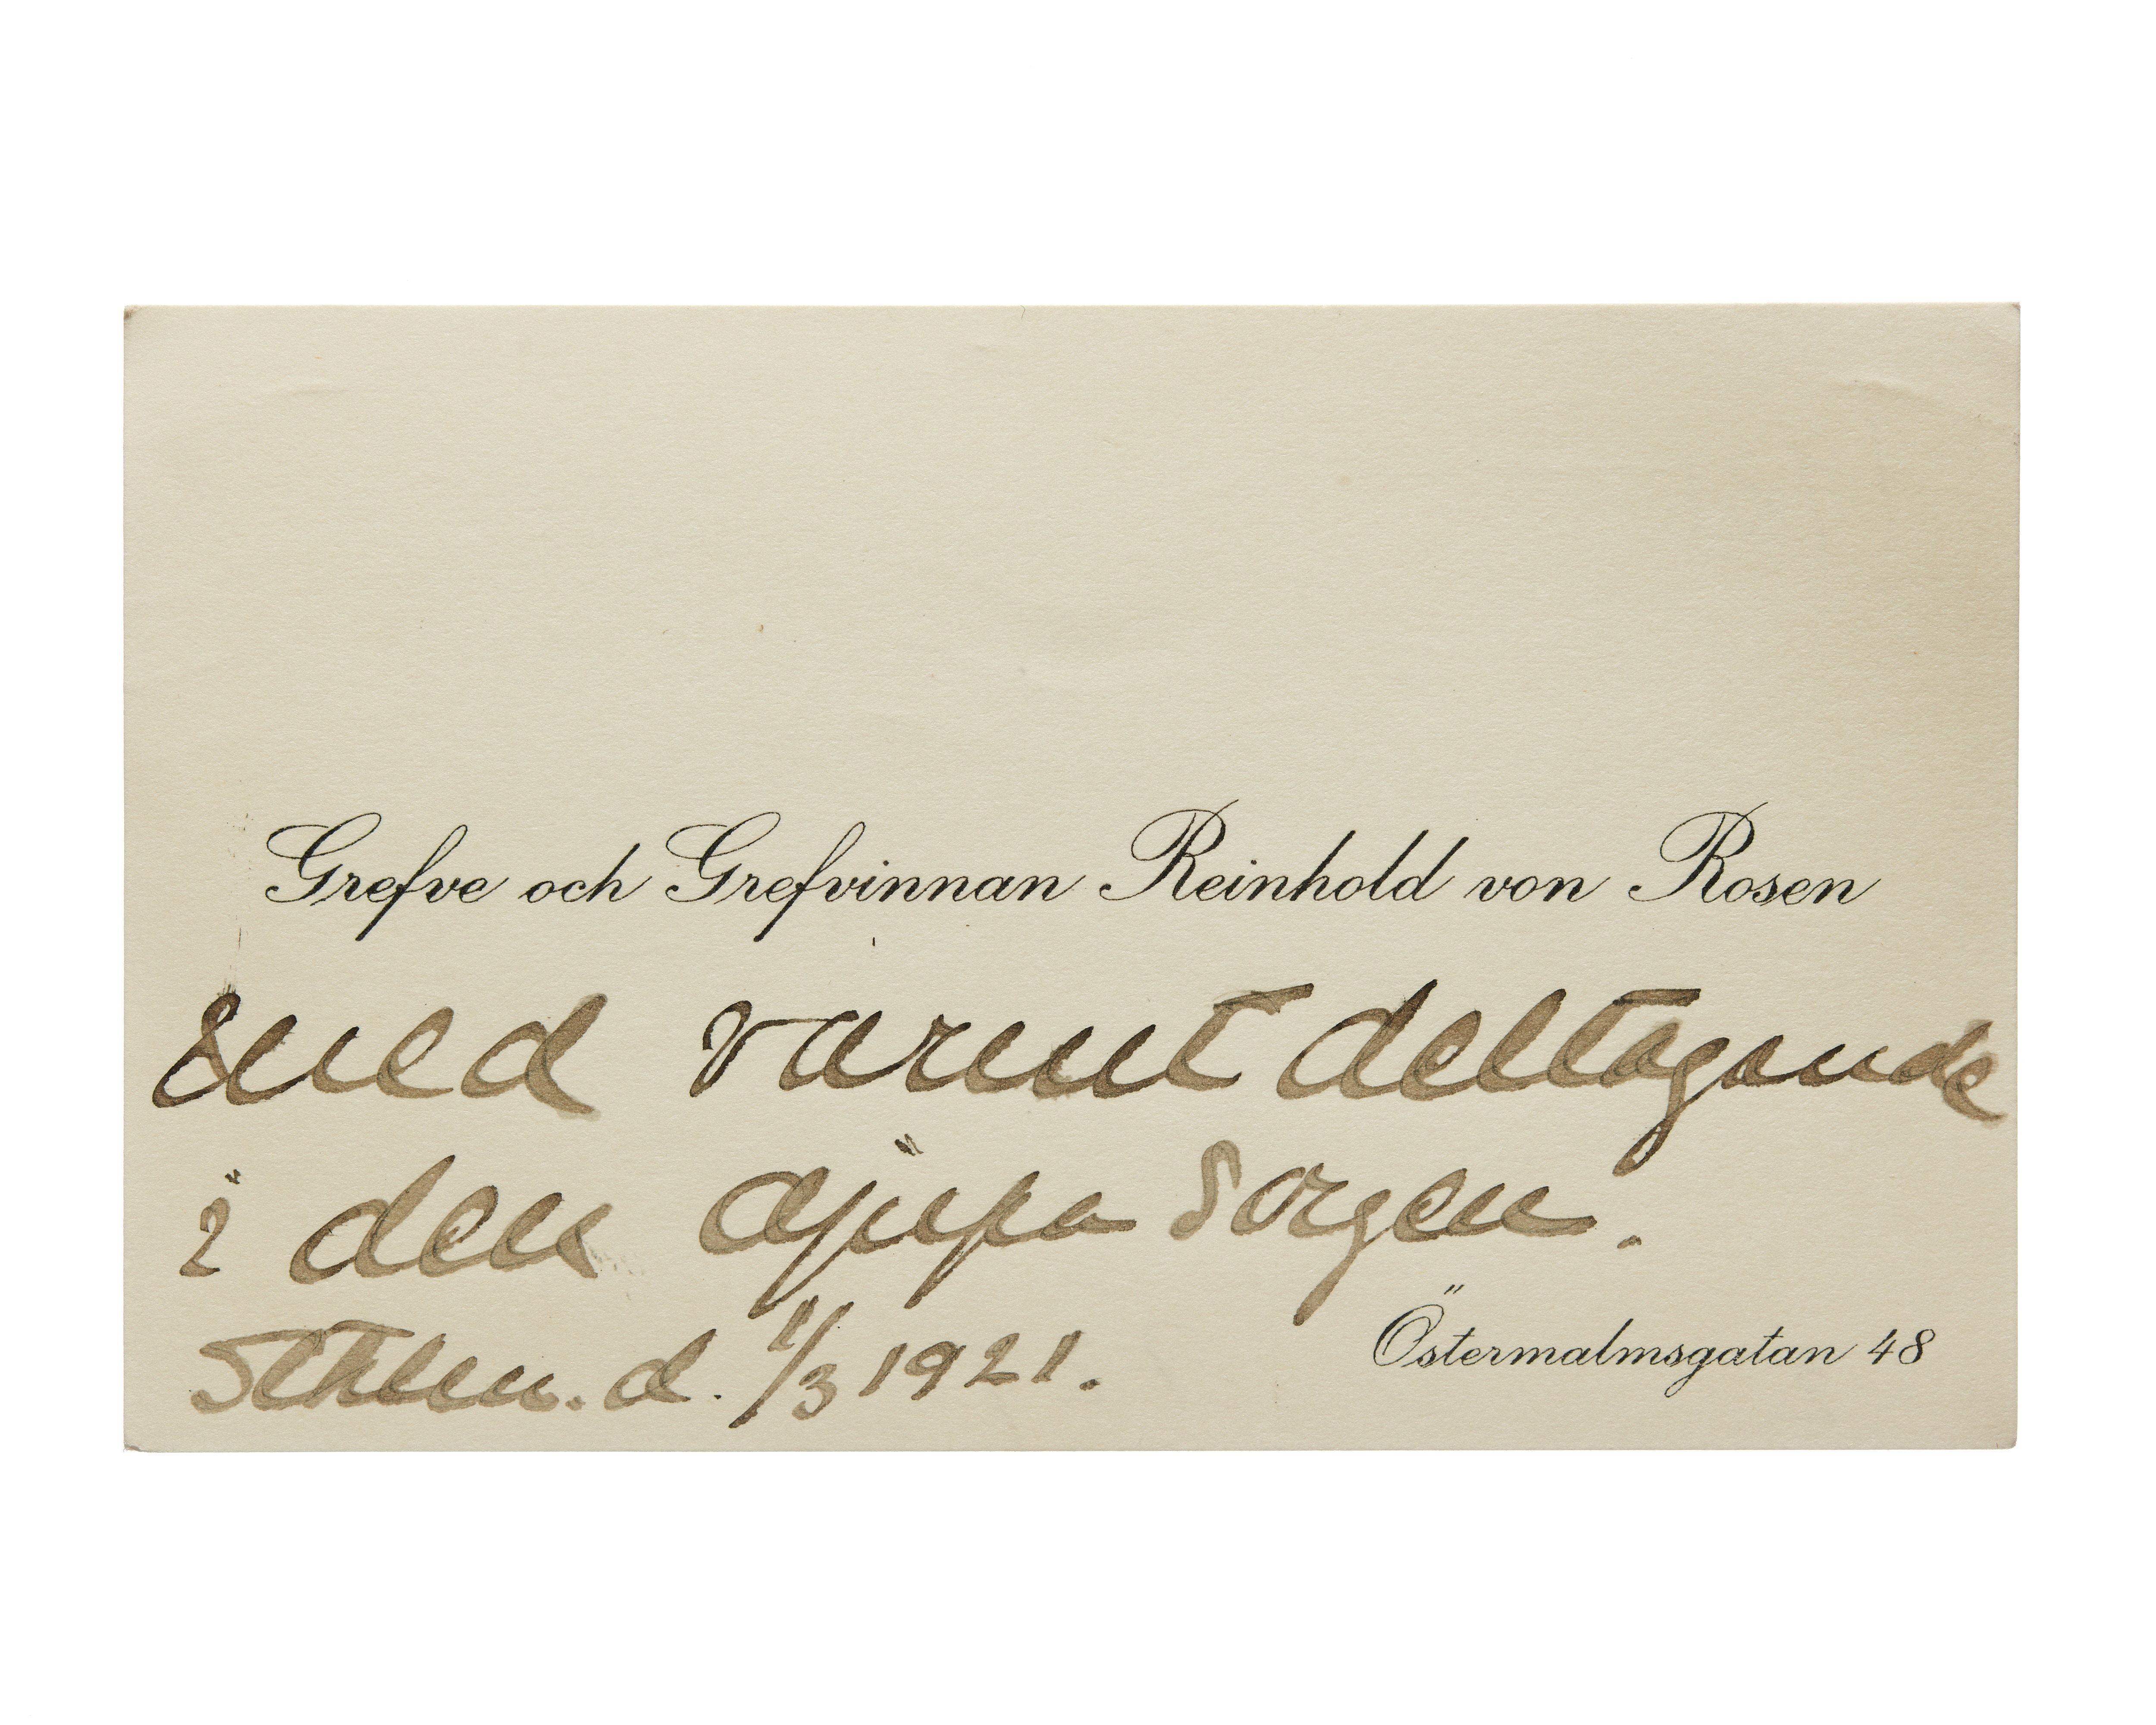 Grefve och Grefvinnan Reinhold von Rosen
med varmt deltagande
i den djupa sorgen.
Sthlm. d. 1/3 1921.
Östermalmsgatan 48